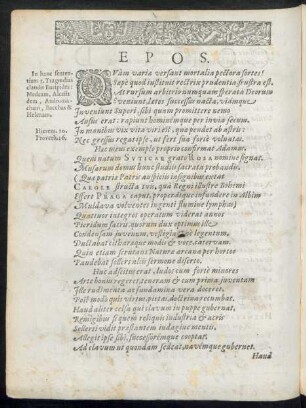 EPOS.
In hanc senten-
tiam 5. Tragœdias
claudit Euripides:
Medeam, Alcesti-
dem, Androma-
cham, Bacchas &
Helenam.
Hierem. 10.
Proverb. 16.
QUàm varia versant mortalia pectora sortes!
Sæpè quod instituit rectrix prudentia, frustra est.
At rursum arbitrio numquam sperata Deorum
Eveniunt, lætos successus nacta, viámque
Inveniunt Superi, sibi quam promittere nemo
Ausus erat: rapiunt hominémque per invia secum.
In manibus vix vita viri est, qua pendet ab astris:
Nec gressus regat ipse, ut fert sua fortè voluntas.
Hoc meus exemplo proprio confirmat Adamus,
Quem natum SVTICÆ grato ROSA nomine signat.
Musarum domus hunc studiis sacrata probandis,
(Quæ patriis Patris auspiciis insignibus extat
CAROLE structa tuis, quâ Regni illustre Bohemi
Essere PRAGA caput, properásque infundere in Albim
Muldava volucres ingenti flumine lymphas)
Quattuor integros operatum viderat annos
Pieridum sacris, quorum dux optimus ille
Condensam juvenum, vestigia pulcra legentum,
Ducebat citharaque modis & voce catervam.
Quin etiam scrutans Naturæ arcana per hortos
Pandebat solleri aliis sermone diserto.
Huc adscitus erat, Iudæ cum fortè minores
Arte bonus regeret, teneram & cum prima juventam
Ille rudimenta ac fundamina vera doceret.
Post modò quis virtus, pietas, doctrina recumbat.
Haud aliter celsa qui clavum in puppe gubernat,
Remigibus si quem reliquis industria & acris
Sollerti vidit præstantem indagine mentis,
Allegit ipse sibi, successorémque cooptat,
Ad clavum ut quondam sedeat, navímque gubernet.
Haud